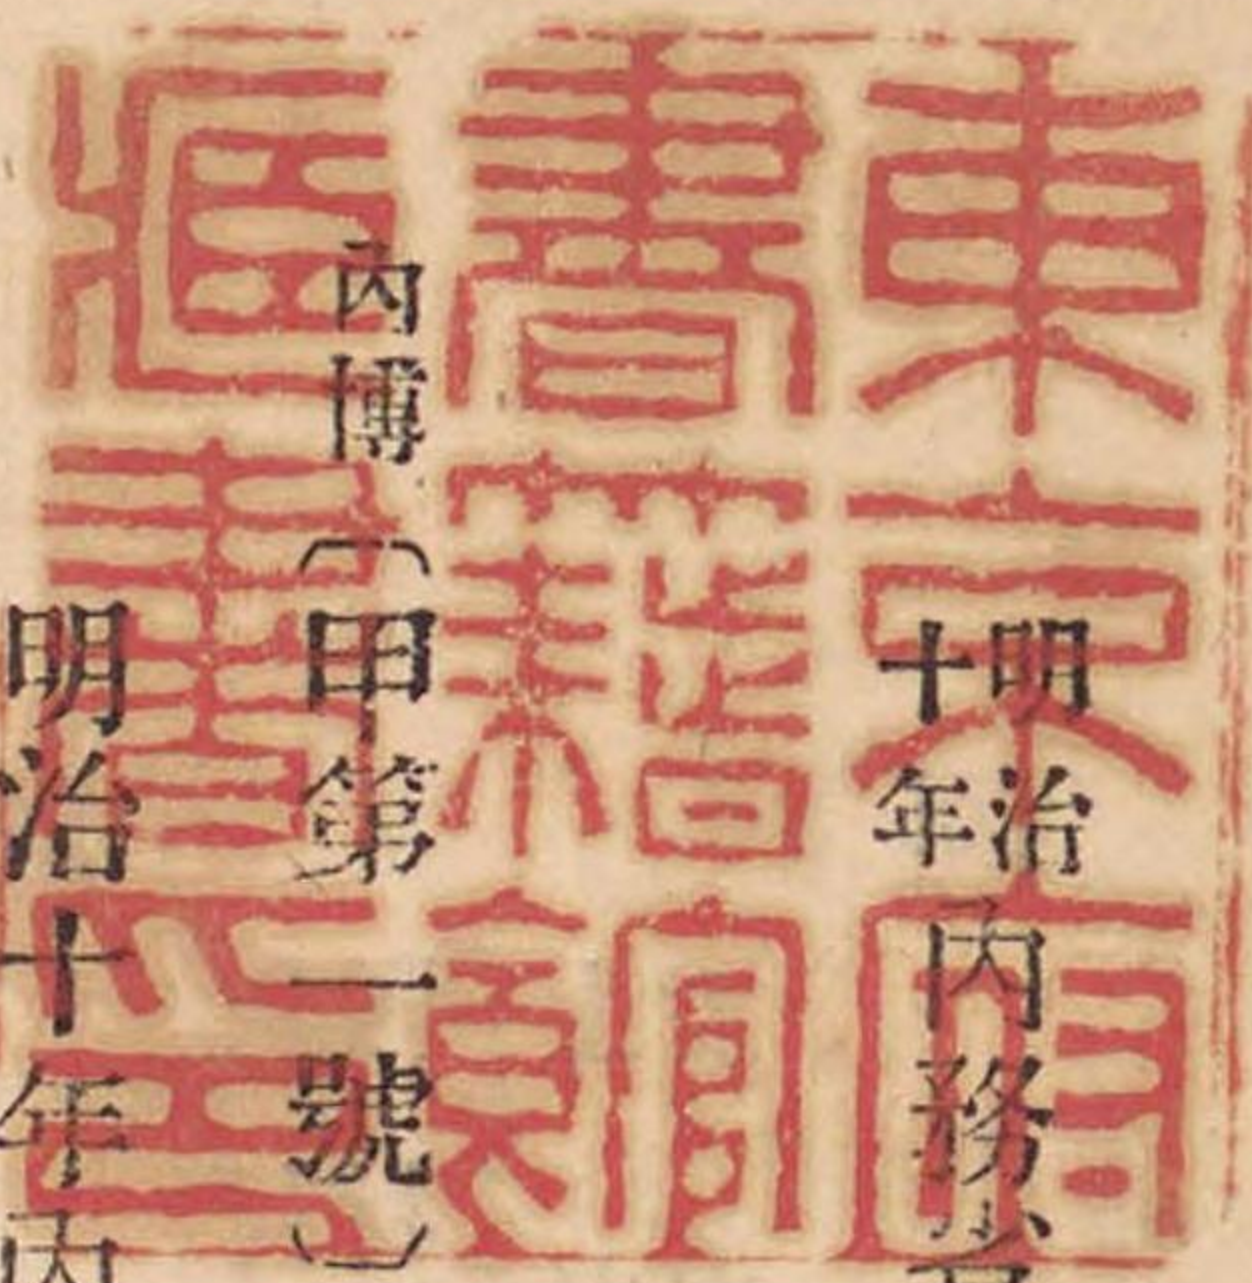 東京府
書籍館
臧書印
明治
十年
內務省
內博（甲第一號）
明治十年內